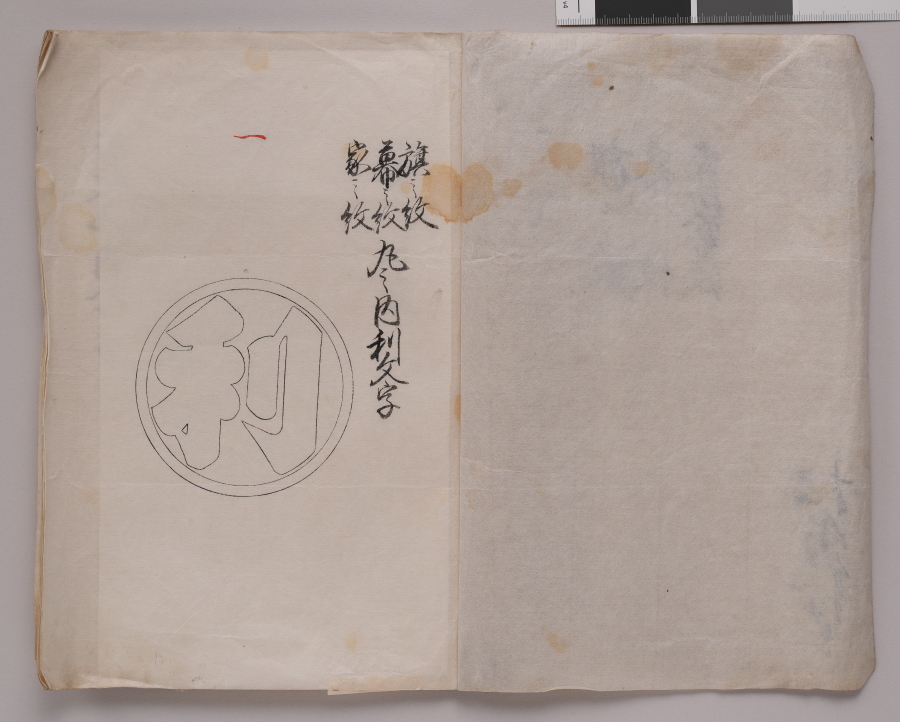 旗之紋
幕之紋
家之紋
丸之内利文字
一
利